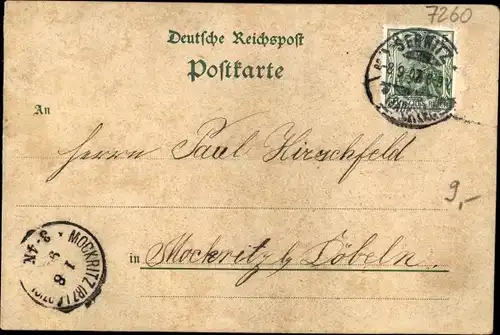 7260
Deutsche Reichspost
Postkarte
SEBNITZ
An
Herrn Paul Hirschfeld
9,-
in Mockritz b/ Döbeln.
MOCKRITZ
1 8
3-4N